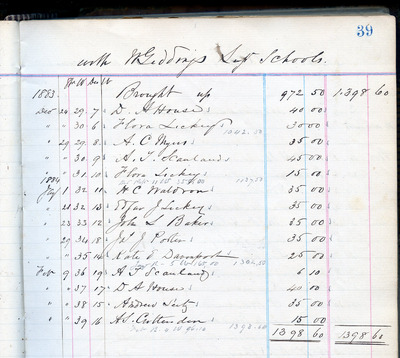 39
with W Giddings Supt Schools.
1883 Brought up 972 50 1.398 60
Dec 24 29. 7. D. A House 40 00
" " 30 6. Flora Lickey 30 00
" 29 29. 8. A. C. Myers 35 00
" " 30 9. A. F. Scanland 45 00
" " 31 10. Flora Lickey 15 00
1884
Jay 1 32 11 H C Waldron 35 00
" 21 32 13 J Lickey 35 00
" 23 33 12 John L Baker 35 00
" 29 34 18 35 00
" " 35 14 Kate E Davenport 25 00
Feb 9 36 19 A F Scanland 6 10
" " 37 17 D A House 40 00
" " 38 15 Andrew 35 00
" " 39 16 A S Crittenden 15 00
1398 60 1398 60